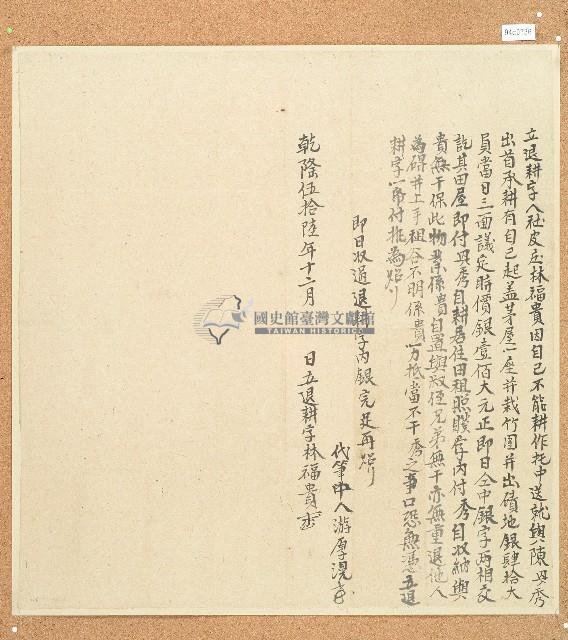 立退耕字人社皮庄林福貴因自己不能耕作托中送就與陳毋秀
出首承耕有自己起盖茅屋一座并栽竹圍并出磧地銀肆拾大
員當日三面議定時價銀壹佰大元正即日仝中銀字兩相交
訖其田屋即付毋秀自耕居住田租照贌字內付秀自收納與
貴無干保此物業係貴自置與叔侄兄弟無干亦無重退他人
為碍并上手租谷不明係貴一力抵當不干秀之事口恐無憑立退
耕字一帋付執為炤
即日收過退耕字內銀完足再炤
代筆中人游厚滉
乾隆伍拾陸年十二月 日立退耕字林福貴
國史館臺灣文獻館
TAIWAN HISTORICA